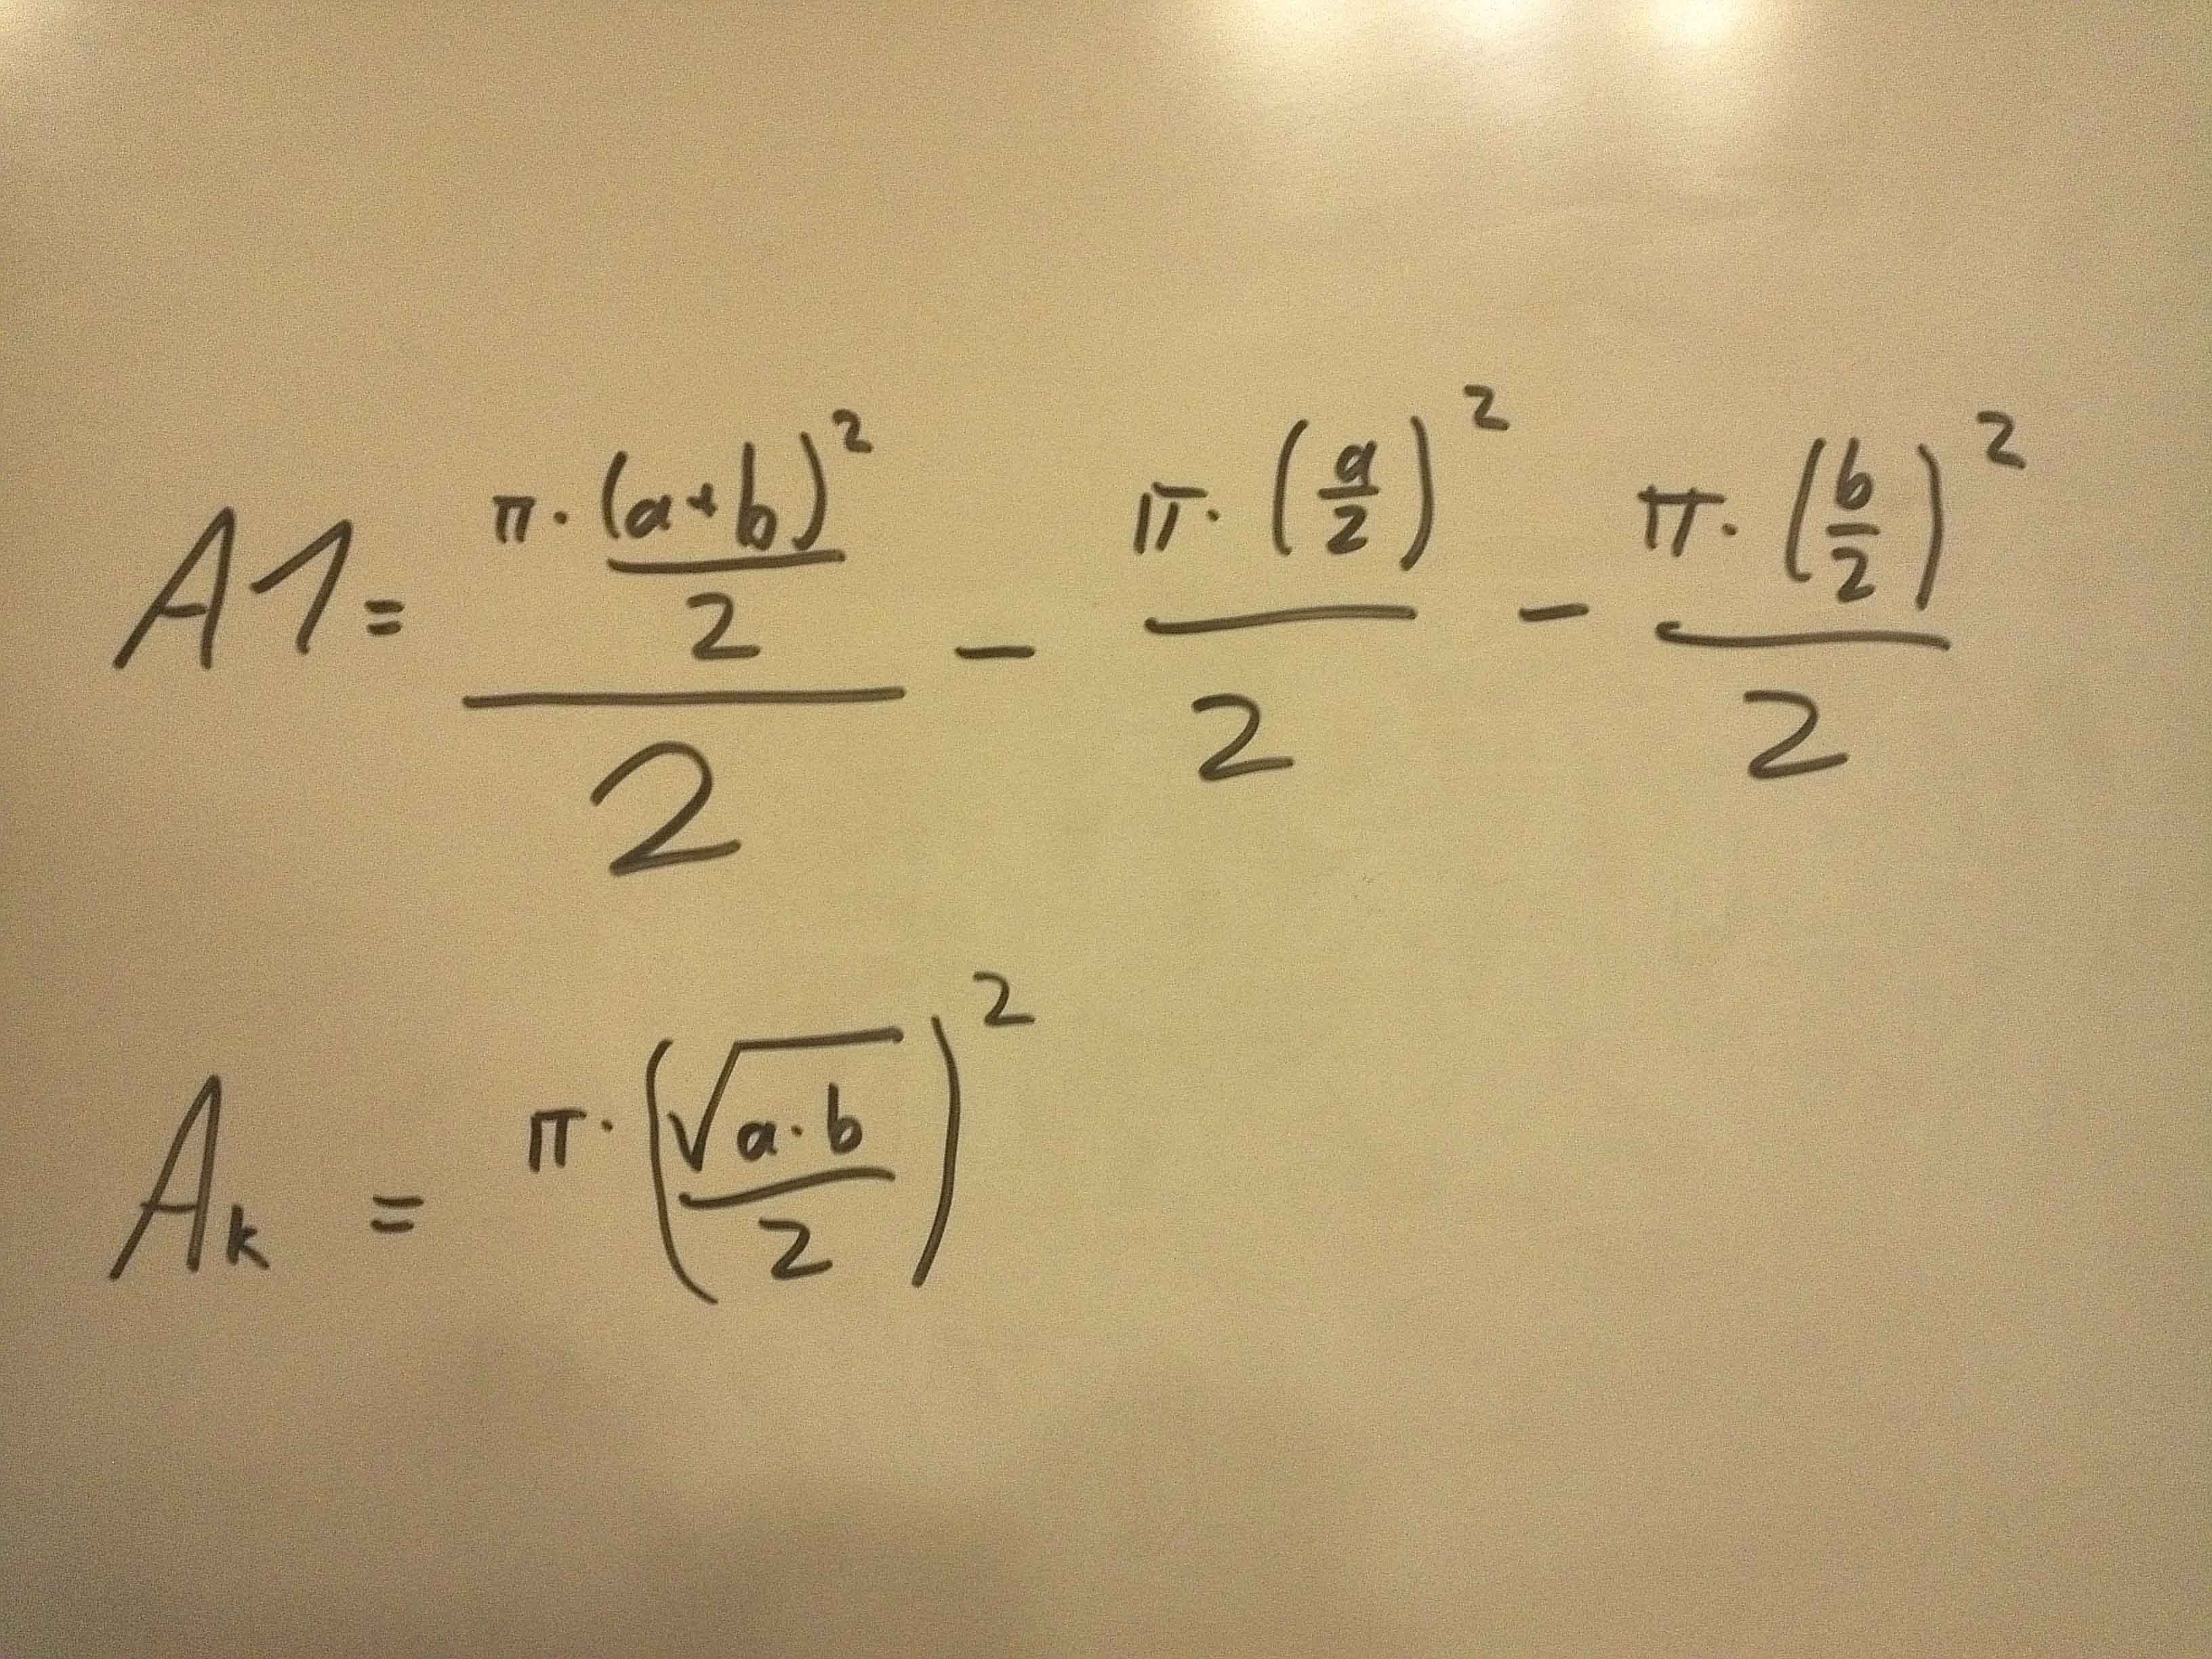 A1 = \frac{\pi \cdot \frac{(a+b)^2}{2}}{2} - \frac{\pi \cdot (\frac{a}{2})^2}{2} - \frac{\pi \cdot (\frac{b}{2})^2}{2}
A_k = \pi \cdot (\frac{\sqrt{a \cdot b}}{2})^2